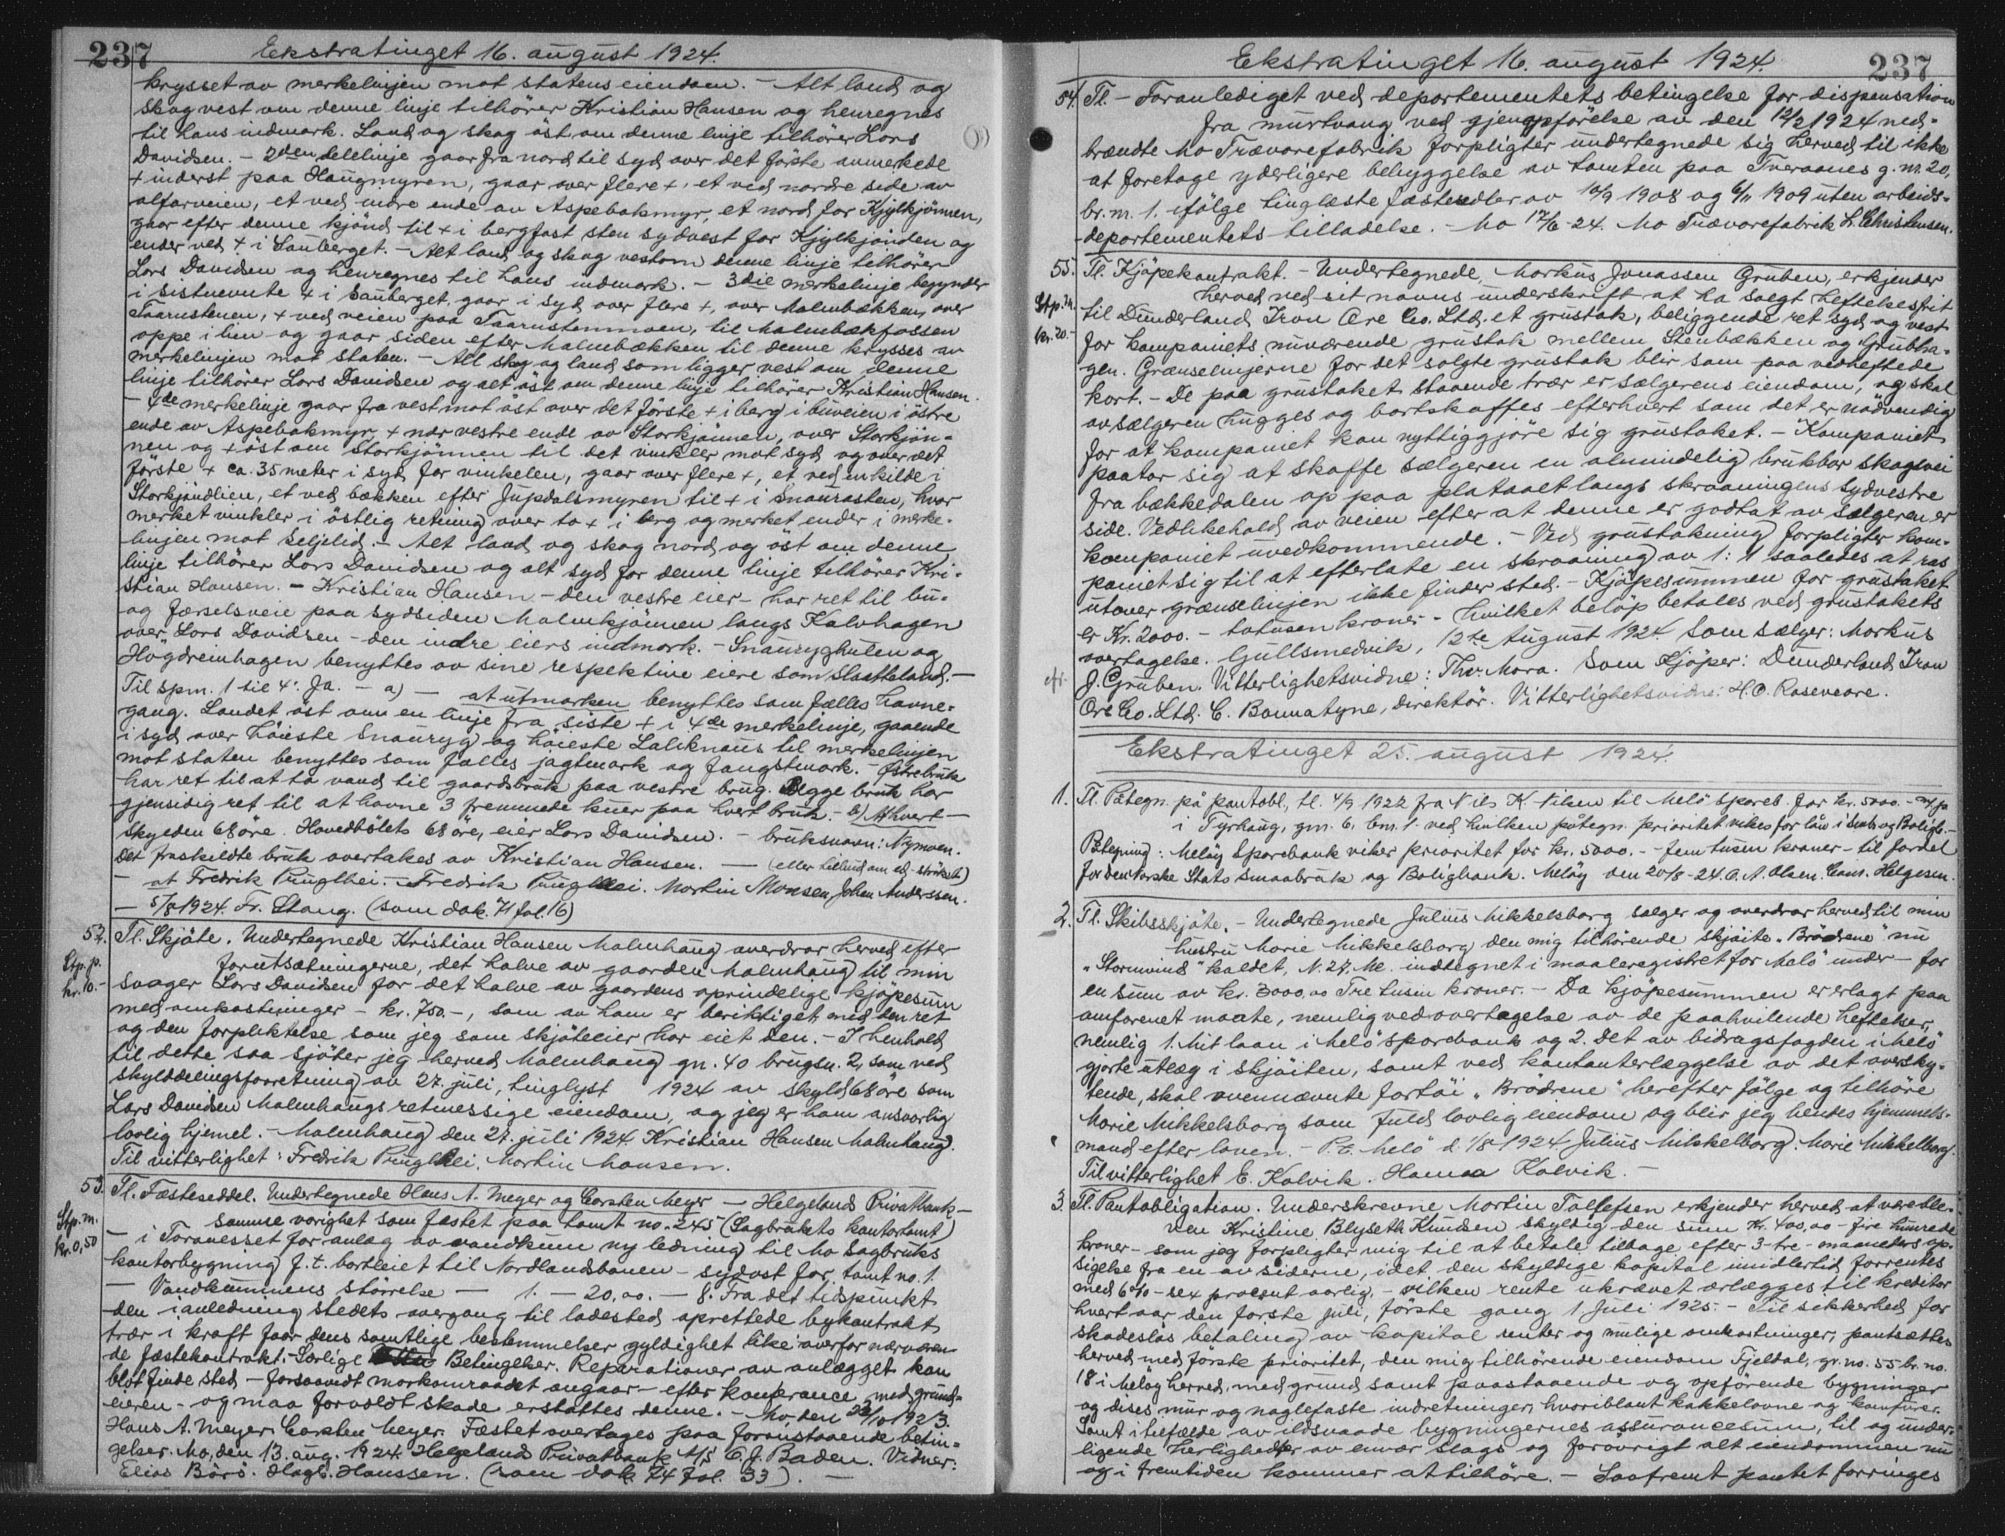 237
Ekstratinget 16. august 1924.
krysset av merkelinjen mot statens eiendom. - Alt land og
skog vest om denne linje tilhører Kristian Hansen og henregnes
til hans indmark. Land og skog öst om denne linje tilhører Lars
Davidsen. - 2den delelinje gaar fra nord til syd over det förste anmerkede
+ inderst paa Haugmyren, gaar over flere +, et ved nordre side av
alfarveien, et ved indre ende av Aspebakmyr, et nord for Kjylkjönnen,
gaar efter denne kjönd til + i bergfast sten sydvest for Kjylkjönden og
ender ved + i Sauberget. - Alt land og skog vestom denne linje tilhører
Lars Davidsen og henregnes til hans indmark. - 3die merkelinje begynder
i sistnevnte + i Sauberget, gaar i syd over flere +, over Malmbækken, over
Taarnstenen, + ved veien paa Taarnstenmoen, til Malmbækfossen
oppe i lien og gaar siden efter Malmbækken til denne krysses av
merkelinjen mot staten. - Alt skog og land som ligger vest om denne
linje tilhører Lars Davidsen og alt öst om denne linje tilhører Kristian Hansen.
- 4de merkelinje gaar fra vest mot öst over det förste + i berg i buveien i östre
ende av Aspebakmyr, + nær vestre ende av Storkjönnen, over Storkjön-
nen og + öst om Storkjönnen til det vinkler mot syd og over det
förste + ca. 35 meter i syd for vinkelen, gaar over flere +, et ved en kilde i
Storkjöndlien, et ved bækken efter Jupdalsmyren til + i Snaurastan, hvor
merket vinkler i östlig retning over to + i berg og merket ender i merke-
linjen mot Seljelid. - Alt land og skog nord og öst om denne
linje tilhører Lars Davidsen og alt syd for denne linje tilhører Kri-
stian Hansen. - Kristian Hansen - den vestre eier - har ret til bu-
og færselsveie paa sydsiden Malmkjönnen langs Kalvhagen
over Lars Davidsen - den indre eiers indmark. - Snauryghulen og
Högdreinhagen benyttes av sine respektive eiere som slaatteland. -
Til spm. 1 til 4: Ja. - a) - at utmarken benyttes som fælles havne-
gang. Landet öst om en linje fra siste + i 4de merkelinje, gaaende
i syd over höieste Snauryg og höieste Laliknaus til merkelinjen
mot staten benyttes som fælles jagtmark og fangstmark. - Østre bruk
har ret til at ta vand til gaardsbruk paa vestre brug. Begge bruk har
gjensidig ret til at havne 3 fremmede kuer paa hvert bruk. - b) Afhvert -
skylden 68 öre. Hovedbölets 68 öre, eier Lars Davidsen. - bruksnavn: Nymoen.
Det fraskildte bruk overtakes av Kristian Hansen. - (eller tillind om ed - ströket)
- at Fredrik Pruglhei. - Fredrik Pruglhei. Martin Monsen Johan Anderssen.
- 5/8 1924. Fr. Stang. (som dok. 71 fol. 16)
52. Tl. Skjöte. Undertegnede Kristian Hansen Malmhaug overdrar herved efter
Stp. p.
kr. 10.-
forutsætningerne, det halve av gaarden Malmhaug til min
svoger Lars Davidsen for det halve av gaardens oprindelige kjöpesum
med omkostninger - kr. 750.-, som av ham er beriktiget med den ret
og den forpliktelse som jeg som skjöteeier har eiet den. - I henhold
til dette saa sjöter jeg herved Malmhaug gn. 40 brugsn. 2, som ved
skylddelingsforretning av 27. juli, tinglyst 1924 av skyld 68 öre som
Lars Davidsen Malmhaugs retmessige eiendom, og jeg er ham ansvarlig
lovlig hjemel. - Malmhaug den 27. juli 1924. Kristian Hansen Malmhaug.
Til vitterlighet: Fredrik Pruglhei. Martin Monsen.
53. Tl. Fæsteseddel. Undertegnede Hans A. Meyer og Carsten Meyer - Helgelands Privatbank -
Stp. m.
kr. 0,50
samme vorighet som fæstet paa tomt no. 245 (Sagbrukets kontortomt)
- i Toranesset for anlæg av vandkum ny ledning til Mo Sagbruks
kontorbygning f. t. bortleiet til Nordlandsbanen - sydost for tomt no. 1.
- Vandkummens störrelse - 1. - 20.00. - 8. Fra det tidspunkt
den i anledning stedets overgang til ladested oprettede bykontrakt
trær i kraft faar dens samtlige bestemmelser gyldighet like overfor nærværen-
de fæstekontrakt. - Særlige Betingelser. Reparationer av anlægget kan
blot finde sted - forsaavidt markomraadet angaar - efter konferance med grund-
eieren - og maa forvoldt skade erstattes denne. - Mo, den 23/10 1923.
Hans A. Meyer Carsten Meyer. Fæstet overtages paa foranstaaende betin-
gelser. Mo, den 13. aug. 1924 Helgelands Privatbank A/S C. J. Baden. Vidner:
Elias Börs. Hagb. Hanssen. (som dok 74 fol. 33). -
Ekstratinget 16. august 1924.
237
54. Tl. - Foranlediget ved departementets betingelse for dispensation
fra murtvang ved gjenopförelse av den 12/2 1924 ned-
brændte Mo Trævarefabrik forpligter undertegnede sig herved til ikke
at foretage yderligere bebyggelse av tomten paa Tveraanes g. nr. 20,
br. nr. 1. ifölge tinglæste fæstesedler av 10/9 1908 og 6/11 1909 uten arbeids-
departementets tilladelse. - Mo 17/6 - 24. Mo Trævarefabrik L. Christensen.
55. Tl. Kjöpekontrakt. - Undertegnede, Markus Jonassen Gruben, erkjender
Stp. m.
kr. 20.-
herved ved sit navns underskrift at ha solgt heftelsesfrit
til Dunderland Iron Ore Co. Ltd. et grustak, beliggende ret syd og vest
for kompaniets nuværende grustak mellem Stenbækken og Grubha-
gen. Grænselinjerne for det solgte grustak blir som paa vedheftede
kort. - De paa grustaket staaende trær er sælgerens eiendom, og skal
av sælgeren hugges og bortskaffes efterhvert som det er nödvendig
for at kompaniet kan nyttiggjöre sig grustaket. - Kompaniet
paatar sig at skaffe sælgeren en almindelig brukbar skogsvei
fra bækkedalen op paa plataaet langs skraaningens sydvestre
side. Vedlikehold av veien efter at denne er godtat av sælgeren er
kompaniet uvedkommende. - Ved grustakning forpligter kom-
paniet sig til at efterlate en skraaning av 1:1 saaledes at ras
utover grænselinjen ikke finder sted. - Kjöpesummen for grustaket
er Kr. 2000. - totusen kroner - hvilket belöp betales ved grustakets
overtagelse. Gullsmedvik, 12te August 1924. Som sælger: Markus
J. Gruben. Vitterlighetsvidne: Thv. Mora. Som Kjöper: Dunderland Iron
Ore Co. Ltd. C. Bannatyne, direktör. Vitterlighetsvidne: H. O. Roseveare.
Ekstratinget 25. august 1924.
1. Tl. Påtegn. på pantobl., tl. 4/9 1922 fra Nils K. Nilsen til Melö Spareb. for kr. 5000.- m/p
i Tyrhaug, gnr. 6, bnr. 1. ved hvilken påtegn. prioritet vikes for lån i Småb. og Boligb. -
Påtegning: Melöy Sparebank viker prioritet for kr. 5000.- - fem tusen kroner - til fordel
for den Norske Stats Smaabruk og Boligbank. Melöy den 20/8 - 24. O. A. Olsen. Conr. Helgesen.
2. Tl. Skibsskjöte. - Undertegnede Julius Mikkelsborg sælger og overdrar herved til min
hustru Marie Mikkelsborg den mig tilhörende skjöite "Brödrene" nu
"Stormvind" kaldet, N. 27. Me. indtegnet i maaleregistret for Melö under - for
en sum av kr. 3000,00 Tre tusen kroner. - Da kjöpesummen er erlagt paa
omforenet maate, nemlig ved overtagelse av de paahvilende heftelser,
nemlig 1. Mit laan i Melö Sparebank og 2. Det av bidragsfogden i Melö
gjorte utlæg i skjöiten, samt ved kontanterlæggelse av det oversky-
tende, skal ovennævnte fartöi "Brödrene" herefter fölge og tilhöre
Marie Mikkelsborg som fuld lovlig eiendom og blir jeg hendes hjemmels-
mand efter loven. - P. t. Melö d. 1/8 1924 Julius Mikkelborg. Marie Mikkelborg.
Til vitterlighet E. Kalvik. Hanna Kalvik. -
3. Tl. Pantobligation. Underskrevne Martin Tollefsen erkjender herved at være ble-
ven Kristine Blyseth Knudsen skyldig den sum Kr. 400,00 - fire hundrede
kroner - som jeg forpligter mig til at betale tilbage efter 3-tre- maaneders op-
sigelse fra en av siderne, idet den skyldige kapital imidlertid forrentes
med 6% - sex procent aarlig, - vilken rente ukrævet erlægges til kreditor
hvert aar den förste juli, förste gang 1. Juli 1925. - Til sikkerhed for
skadeslös betaling av kapital renter og mulige omkostninger, pantsættes
herved med förste prioritet, den mig tilhörende eiendom Fjeldal, gr. no. 55 br. no.
18 i Melöy herred, med grund samt paastaaende og opförende bygninger
og disses mur og naglefaste indretninger, hvoriblant kakkelovne og komfurer.
Samt i tilfælde av ildsvaade bygningernes assurancesum, til og under-
liggende herligheder av enver slags og forövrigt alt eiendommen nu
og i fremtiden kommer at tilhöre. - Saafremt pantet forringes